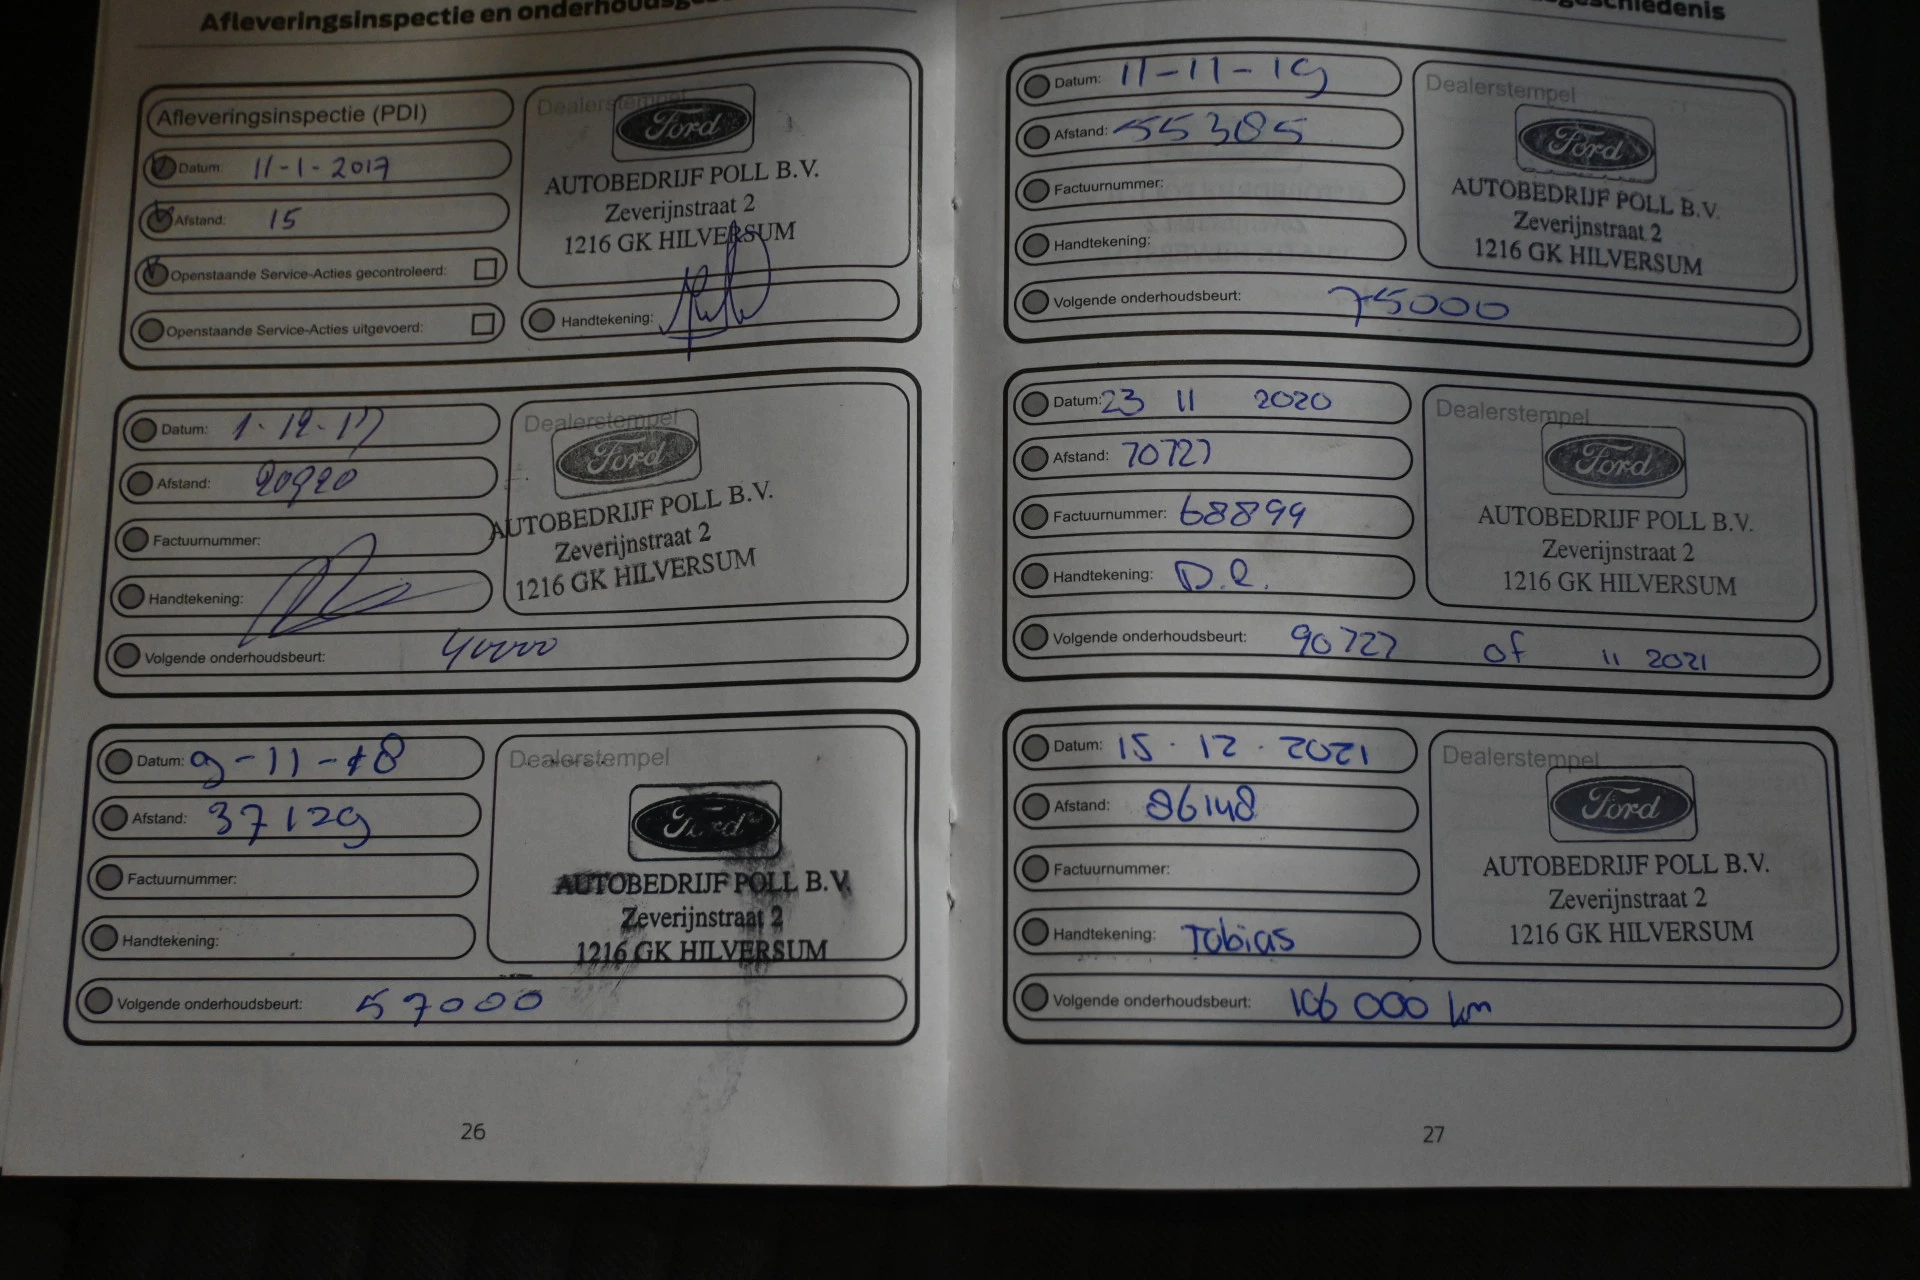 Afleveringsinspectie en
Afleveringsinspectie (PDI)
Datum: 11-1-2017
Afstand: 15
Openstaande Service-Acties gecontroleerd:
Openstaande Service-Acties uitgevoerd:
Dealerstempel
Ford
AUTOBEDRIJF POLL B.V.
Zeverijnstraat 2
1216 GK HILVERSUM
Handtekening:
Datum: 1-12-17
Afstand: 20920
Factuurnummer:
Handtekening:
Volgende onderhoudsbeurt: 40000
Dealerstempel
Ford
AUTOBEDRIJF POLL B.V.
Zeverijnstraat 2
1216 GK HILVERSUM
Datum: 9-11-18
Afstand: 37129
Factuurnummer:
Handtekening:
Volgende onderhoudsbeurt: 57000
Dealerstempel
Ford
AUTOBEDRIJF POLL B.V.
Zeverijnstraat 2
1216 GK HILVERSUM
26
Datum: 11-11-19
Afstand: 55385
Factuurnummer:
Handtekening:
Volgende onderhoudsbeurt: 75000
Dealerstempel
Ford
AUTOBEDRIJF POLL B.V.
Zeverijnstraat 2
1216 GK HILVERSUM
Datum: 23 11 2020
Afstand: 70727
Factuurnummer: 68899
Handtekening: D.R.
Volgende onderhoudsbeurt: 90727 of 11 2021
Dealerstempel
Ford
AUTOBEDRIJF POLL B.V.
Zeverijnstraat 2
1216 GK HILVERSUM
Datum: 15.12.2021
Afstand: 86148
Factuurnummer:
Handtekening: Tobias
Volgende onderhoudsbeurt: 106 000 km
Dealerstempel
Ford
AUTOBEDRIJF POLL B.V.
Zeverijnstraat 2
1216 GK HILVERSUM
27